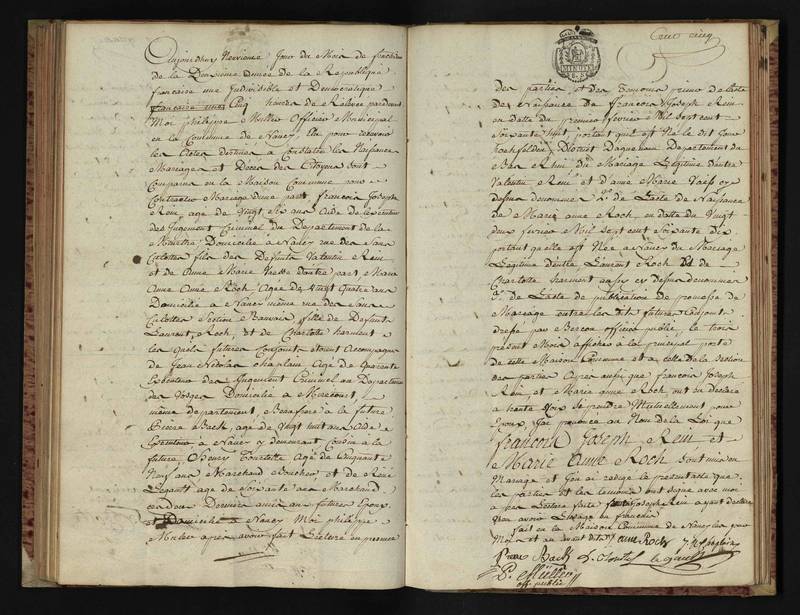 Aujourdhuy Neuvieme Jour du Mois de fructidor
de la Deuxieme année de la Republique
francaise une Indivisible et Democratique
Cinq heures de Relevée pardevant
Moi philippe Muller Officier Municipal
en la Commune de Nancy, Elu pour recevoir
les Actes destinés a Constater les Naissances
Mariages et Décès des Citoyens sont
Comparus en la Maison Commune pour
Contracter Mariage d'une part, francois Joseph
Rem, age de Vingt Six ans Aide de l'executeur
des Jugement Criminel du Departement de la
Meurthe, Domicilié a Nancy rue des Sans
Culottes fils des Defunts Valentin Rem
et de Anne Marie d'autre part, Marie
Anne Roch Agée de Vingt Quatre ans
Domicilié a Nancy même rue des Sans
Culottes Section fille de Defunt
Laurent Roch, et de Charlotte harmont
les Quels futures Conjoints etoient Accompagnés
de Jean Nicolas Age de Quarante
Executeur des Jugement Criminel au Departement
des Vosges Domicilié a Mirecourt,
même departement, Beaufrere a la future
Pierre Bach, age de Vingt huit ans Aide a
Executeur a Nancy y demeurant Cousin a la
future Age de Cinquante
Neuf ans Marchand et de René
Legault age de Soixante ans Marchand
ces deux Derniers amis aux futures Epoux
et Domicilié a Nancy Moi philippe
Muller apres avoir fait Lecture en presence
Cent cinq
des parties, et des temoins primo de l'acte
de Naissance de francois Joseph Rem
en datte du premier fevrier Mil Sept cent
Soixante huit, portant quil est Né le dit Jour
District Departement du
Bas Rhin, du Mariage Legitime d'entre
Valentin Rem et d'anne Marie cy
dessus denommés 2.° de l'acte de Naissance
de Marie anne Roch, en datte du Vingt
deux fevrier Mil Sept cent Soixante dix
portant quelle est Née a Nancy du Mariage
Legitime d'entre Laurent Roch et de
Charlotte harmont aussy cy dessus denommés
3.° de l'acte de publication de promesse de
Mariage entre les dits futures Conjoint
dressé par officier public, le trois
present Mois affichée a la principal porte
de cette Maison Commune et a celle de la Section
des parties Apres aussy que francois Joseph
Rem, et Marie anne Roch, ont eu declaré
a haute Voix se prendre Mutuellement pour
Epoux, J'ai prononcé au Nom de la Loi que
francois Joseph Rem et
Marie anne Roch sont unis en
Mariage et J'en ai redigé le present acte que
les parties et les temoins ont signé avec moi
a pres Lecture faite Joseph Rem ayant declaré
n'en avoir L'usage en francois
fait en la Maison Commune de Nancy les jour
Mois et an avant dits anne Roch
Pierre Bach
P. Müller
off. public